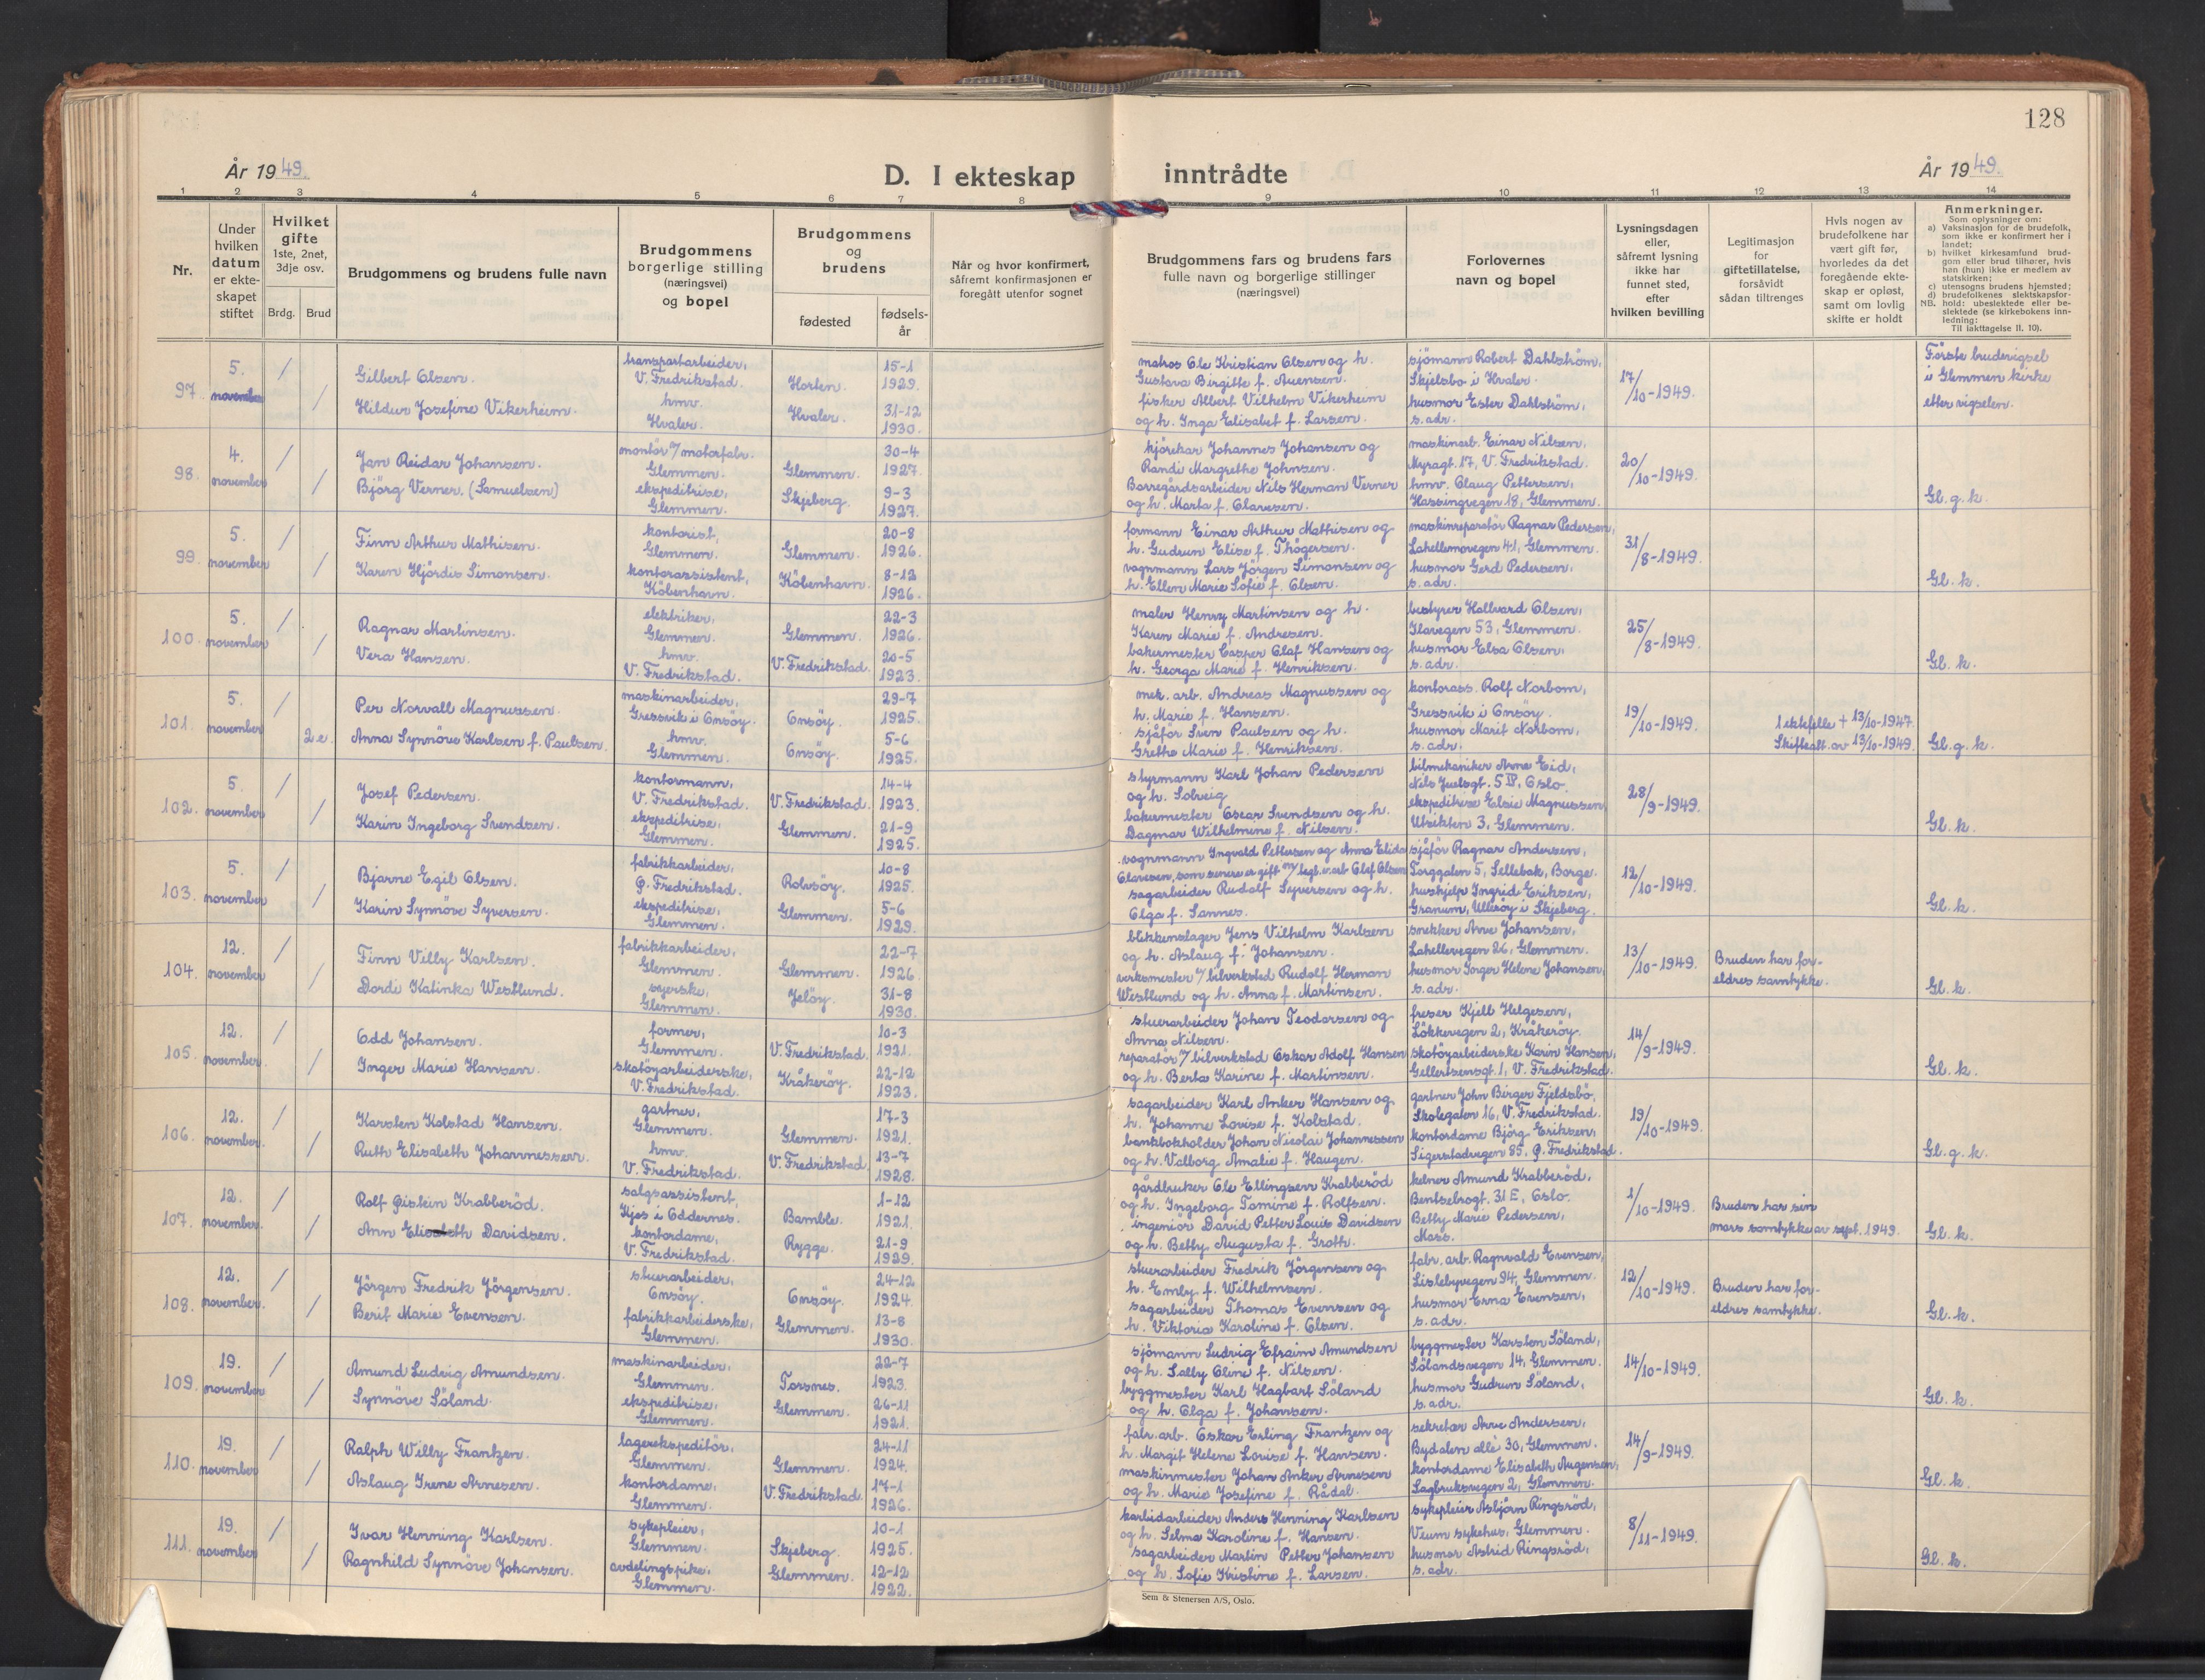 128
År 1949.
D. I ekteskap inntrådte
År 1949.
1 2 3 4 5 6 7 8 9 10 11 12 13 14
Nr.
Under hvilken datum er ekte-skapet stiftet
Hvilket gifte
1ste, 2net, 3dje osv.
Brdg. Brud
Brudgommens og brudens fulle navn
Brudgommens borgerlige stilling (næringsvei) og bopel
Brudgommens og brudens
fødested
fødsels-år
Når og hvor konfirmert, såfremt konfirmasjonen er foregått utenfor sognet
Brudgommens fars og brudens fars fulle navn og borgerlige stillinger (næringsvei)
Forlovernes navn og bopel
Lysningsdagen eller, såfremt lysning ikke har funnet sted, efter hvilken bevilling
Legitimasjon for giftetillatelse, forsåvidt sådan tiltrenges
Hvis nogen av brudefolkene har vært gift før, hvorledes da det foregående ekte-skap er opløst, samt om lovlig skifte er holdt
Anmerkninger.
Som oplysninger om:
a) Vaksinasjon for de brudefolk, som ikke er konfirmert her i landet;
b) hvilket kirkesamfund brud-gom eller brud tilhører, hvis han (hun) ikke er medlem av statskirken;
c) utensogns brudens hjemsted;
d) brudefolkenes slektskapsfor-hold: ubeslektede eller be-slektede (se kirkebokens inn-ledning:
NB. Til iakttagelse II. 10).
97. 5. november / / Gilbert Olsen.
Hildur Josefine Vikerheim.
transportarbeider, V. Fredrikstad.
hmv. Hvaler.
Horten. 15-1 1929.
Hvaler. 31-12 1930.
matros Ole Kristian Olsen og h.
Gustava Birgitte f. Auensen.
fisker Albert Vilhelm Vikerheim
og h. Inga Elisabet f. Larsen.
sjömann Robert Dahlström,
Skjelsbo i Hvaler.
husmor Ester Dahlström,
s. adr.
17/10-1949.
Förste brudevigsel
i Glemmen kirke
etter vigselen.
98. 4. november / / Jan Reidar Johansen.
Björg Verner. (Samuelsen)
montör v/ motorfabr. Glemmen.
ekspeditrise, Glemmen.
Glemmen. 30-4 1927.
Skjeberg. 9-3 1927.
kjörekar Johannes Johansen og
Randi Margrethe Johnsen.
Borregårdsarbeider Nils Herman Verner
og h. Marta f. Olavesen.
maskinarb. Einar Nilsen,
Myragt. 17, V. Fredrikstad.
hmv. Olaug Pettersen,
Hassingvegen 18, Glemmen.
20/10-1949.
Gl. g. k.
99. 5. november / / Finn Arthur Mathisen.
Karen Hjördis Simonsen.
kontorist, Glemmen.
kontorassistent, Köbenhavn.
Glemmen. 20-8 1926.
Köbenhavn. 8-12 1926.
formann Einar Arthur Mathisen og
h. Gudrun Elise f. Thögersen.
vognmann Lars Jörgen Simonsen og
h. Ellen Marie Sofie f. Olsen.
maskinreparatör Ragnar Pedersen,
Lahellemovegen 41, Glemmen.
husmor Gerd Pedersen,
s. adr.
31/8-1949.
Gl. k.
100. 5. november / / Ragnar Martinsen.
Vera Hansen.
elektriker, Glemmen.
hmv. V. Fredrikstad.
Glemmen. 22-3 1926.
V. Fredrikstad. 20-5 1923.
maler Henry Martinsen og h.
Karen Marie f. Andresen.
bakermester Casper Olaf Hansen og
h. Georga Marie f. Henriksen.
bestyrer Hallvard Olsen,
Ilavegen 53, Glemmen.
husmor Elsa Olsen,
s. adr.
25/8-1949.
Gl. k.
101. 5. november / 2 e. Per Norvall Magnussen.
Anna Synnöve Karlsen f. Paulsen.
maskinarbeider, Gressvik i Onsöy.
hmv. Glemmen.
Onsöy. 29-7 1925.
Onsöy. 5-6 1925.
mek. arb. Andreas Magnussen og
h. Marie f. Hansen.
sjåför Sven Paulsen og h.
Grethe Marie f. Henriksen.
kontorass. Rolf Norbom,
Gressvik i Onsöy.
husmor Marit Norbom,
s. adr.
19/10-1949.
1 ektefelle + 13/10-1947.
Skifteatt. av 13/10-1949.
Gl. g. k.
102. 5. november / / Josef Pedersen.
Karin Ingeborg Svendsen.
kontormann, V. Fredrikstad.
ekspeditrise, Glemmen.
V. Fredrikstad. 14-4 1923.
Glemmen. 21-9 1925.
styrmann Karl Johan Pedersen
og h. Solveig
bakermester Oscar Svendsen og h.
Dagmar Wilhelmine f. Nilsen.
bilmekaniker Arne Eid,
Nils Juelsgt. 5 IV, Oslo.
ekspeditrise Elsie Magnussen,
Utsikten 3, Glemmen.
28/9-1949.
Gl. k.
103. 5. november / / Bjarne Egil Olsen.
Karin Synnöve Syversen.
fabrikkarbeider, Ø. Fredrikstad.
ekspeditrise, Glemmen.
Rolvsöy. 10-8 1925.
Glemmen. 5-6 1929.
vognmann Ingvald Pettersen og Anna Elida
Olavesen, som senere er gift m/ tegl.v.arb. Olaf Olsen
sagarbeider Rudolf Syversen og h.
Olga f. Sannes.
sjåför Ragnar Andersen,
Torggaten 5, Sellebak, Borge.
hushjelp Ingrid Eriksen,
Granum, Ulleröy i Skjeberg.
12/10-1949.
Gl. k.
104. 12. november / / Finn Villy Karlsen.
Dordi Katinka Westlund.
fabrikkarbeider, Glemmen.
syerske, Glemmen.
Glemmen. 22-7 1926.
Jelöy. 31-8 1930.
blikkenslager Jens Vilhelm Karlsen
og h. Aslaug f. Johansen.
verksmester v/ bilverksted Rudolf Herman
Westlund og h. Anna f. Martinsen.
snekker Arne Johansen,
Lahellevegen 26, Glemmen.
husmor Inger Helene Johansen,
s. adr.
13/10-1949.
Bruden har for-
eldres samtykke.
Gl. k.
105. 12. november / / Odd Johansen.
Inger Marie Hansen.
former, Glemmen.
skotöyarbeiderske, V. Fredrikstad.
V. Fredrikstad. 10-3 1921.
Kråkeröy. 22-12 1923.
stuerarbeider Johan Teodorsen og
Anna Nilsen.
reparatör v/ bilverksted Oskar Adolf Hansen
og h. Berta Karine f. Martinsen.
freser Kjell Helgesen,
Lökkevegen 2, Kråkeröy.
skotöyarbeiderske Karin Hansen,
Gellertsensgt. 1, V. Fredrikstad.
14/9-1949.
Gl. k.
106. 12. november / / Karsten Kolstad Hansen.
Ruth Elisabeth Johannessen.
gartner, Glemmen.
hmv. V. Fredrikstad.
Glemmen. 17-3 1921.
V. Fredrikstad. 13-7 1928.
sagarbeider Karl Anker Hansen og
h. Johanne Lovise f. Kolstad.
bankbokholder Johan Nicolai Johannessen
og h. Valborg Amalie f. Haugen.
gartner John Birger Fjeldsbö,
Skolegaten 16, V. Fredrikstad.
kontordame Björg Eriksen,
Sigerstadvegen 85, Ø. Fredrikstad.
19/10-1949.
Gl. g. k.
107. 12. november. / / Rolf Øistein Krabberöd.
Ann Elisabeth Davidsen.
salgsassistent, Kjos i Oddernes.
kontordame, V. Fredrikstad.
Bamble. 1-12 1921.
Rygge. 21-9 1929.
gårdbruker Ole Ellingsen Krabberöd
og h. Ingeborg Tomine f. Rolfsen.
ingeniör David Petter Louis Davidsen
og h. Betty Augusta f. Groth.
kelner Amund Krabberöd,
Bentsebrogt. 31 E, Oslo.
Betty Marie Pedersen,
Moss.
1/10-1949.
Bruden har sin
mors samtykke av sept. 1949.
Gl. k.
108. 12. november. / / Jörgen Fredrik Jörgensen.
Berit Marie Evensen.
stuerarbeider, Onsöy.
fabrikkarbeiderske, Glemmen.
Onsöy. 24-12 1924.
Glemmen. 13-8 1930.
stuerarbeider Fredrik Jörgensen og
h. Emly f. Wilhelmsen.
sagarbeider Thomas Evensen og
h. Viktoria Karoline f. Olsen.
fabr. arb. Ragnvald Evensen,
Lislebyvegen 94, Glemmen.
husmor Erna Evensen,
s. adr.
12/10-1949.
Bruden har for-
eldres samtykke.
Gl. k.
109. 19. november / / Amund Ludvig Amundsen.
Synnöve Söland.
maskinarbeider, Glemmen.
ekspeditrise, Glemmen.
Torsnes. 22-7 1923.
Glemmen. 26-11 1921.
sjömann Ludvig Efraim Amundsen
og h. Solly Oline f. Nilsen.
byggmester Karl Hagbart Söland
og h. Olga f. Johansen.
byggmester Karsten Söland,
Sölandsvegen 14, Glemmen.
husmor Gudrun Söland,
s. adr.
14/10-1949.
Gl. k.
110. 19. november / / Ralph Willy Frantzen.
Aslaug Irene Arnesen.
lagerekspeditör, Glemmen.
kontordame, Glemmen.
Glemmen. 24-11 1924.
V. Fredrikstad. 17-1 1926.
fabr. arb. Oskar Erling Frantzen og
h. Margit Helene Lovise f. Hansen.
maskinmester Johan Anker Arnesen
og h. Marie Josefine f. Rådal.
sekretær Arne Andersen,
Bydalen allé 30, Glemmen.
kontordame Elisabeth Augensen,
Sagbruksvegen 2, Glemmen.
14/9-1949.
Gl. k.
111. 19. november / / Ivar Henning Karlsen.
Ragnhild Synnöve Johansen.
sykepleier, Glemmen.
avdelingspike, Glemmen.
Skjeberg. 10-1 1925.
Glemmen. 12-12 1922.
karbidarbeider Anders Henning Karlsen
og h. Selma Karoline f. Hansen.
sagarbeider Martin Petter Johansen
og h. Sofie Kristine f. Larsen.
sykepleier Asbjörn Ringsröd,
Veum sykehus, Glemmen.
husmor Astrid Ringsröd,
s. adr.
8/11-1949.
Gl. k.
Sem & Stenersen A/S, Oslo.